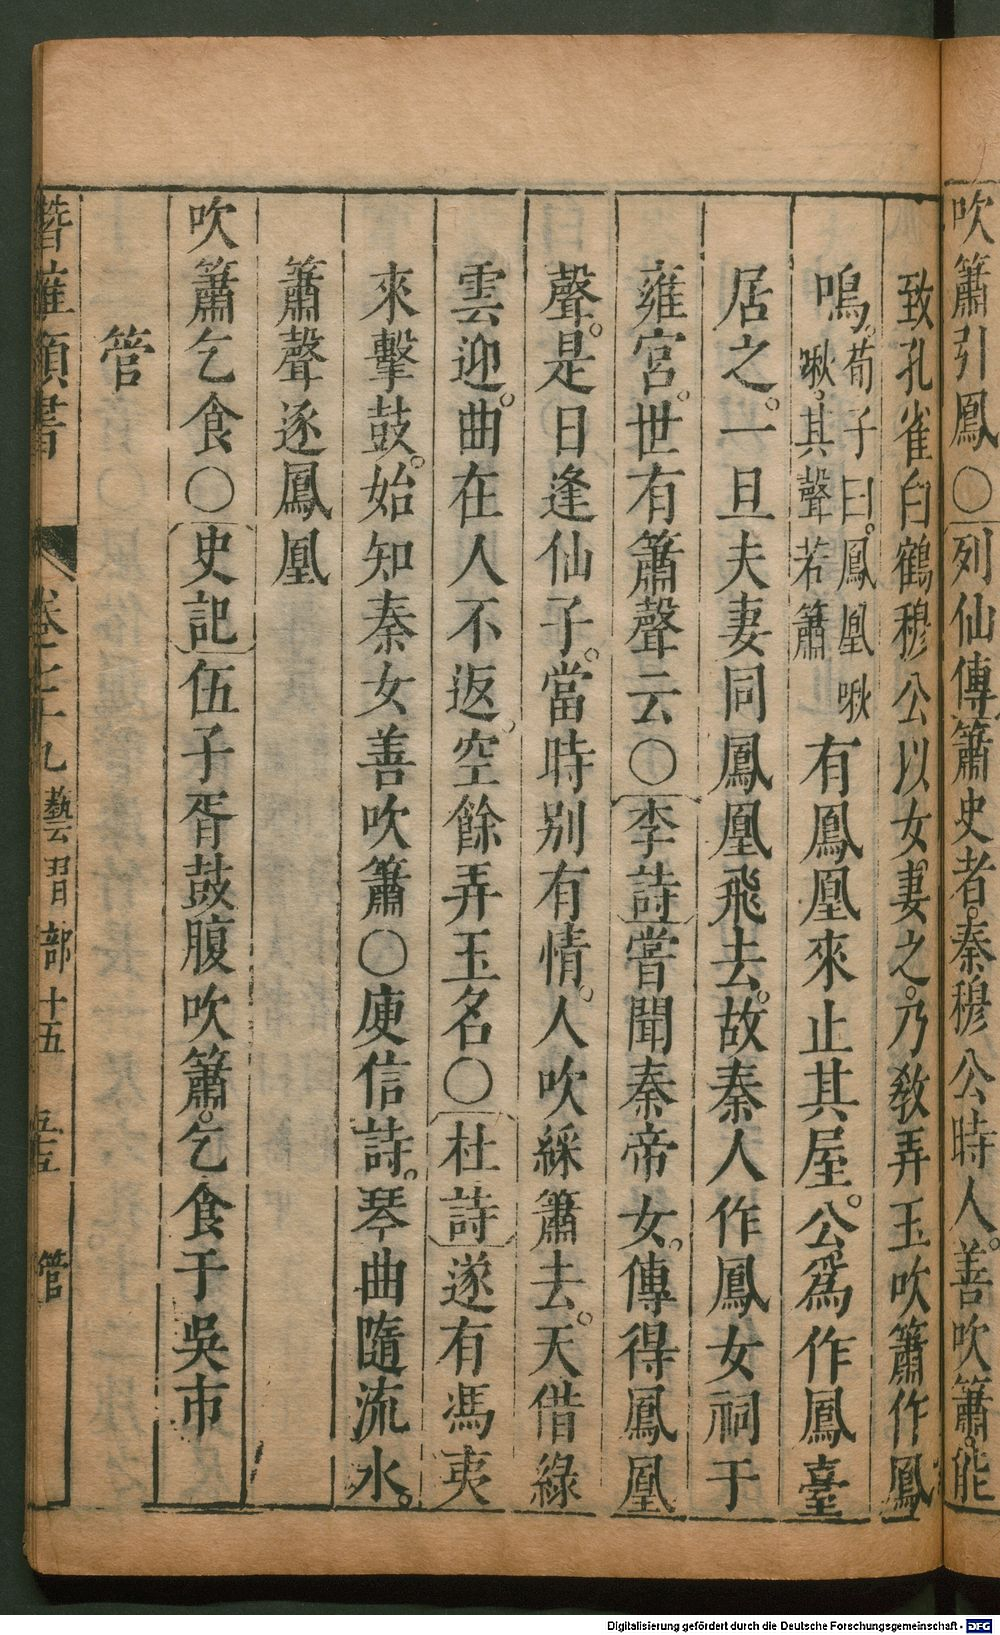 吹簫引鳳○列仙傳簫史者。秦穆公時人。善吹簫。能
致孔雀白鶴穆公以女妻之。乃敎弄玉吹簫作鳳
鳴。荀子曰。鳳凰啾啾。其聲若簫有鳳凰來止其屋。公爲作鳳臺
居之。一旦夫妻同鳳凰飛去。故秦人作鳳女祠于
雍宮。世有簫聲云○李詩嘗聞秦帝女。傳得鳳凰
聲。是日逢仙子。當時别有情。人吹綵簫去。天借綠
雲迎。曲在人不返。空餘弄玉名○杜詩遂有馮夷
來擊鼓。始知秦女善吹簫○庾信詩。琴曲隨流水。
簫聲逐鳳凰
吹簫乞食○史記伍子胥鼓腹吹簫。乞食于吳市
管
卷七十九 藝習部十五 管
Digitalisierung gefördert durch die Deutsche Forschungsgemeinschaft - DFG